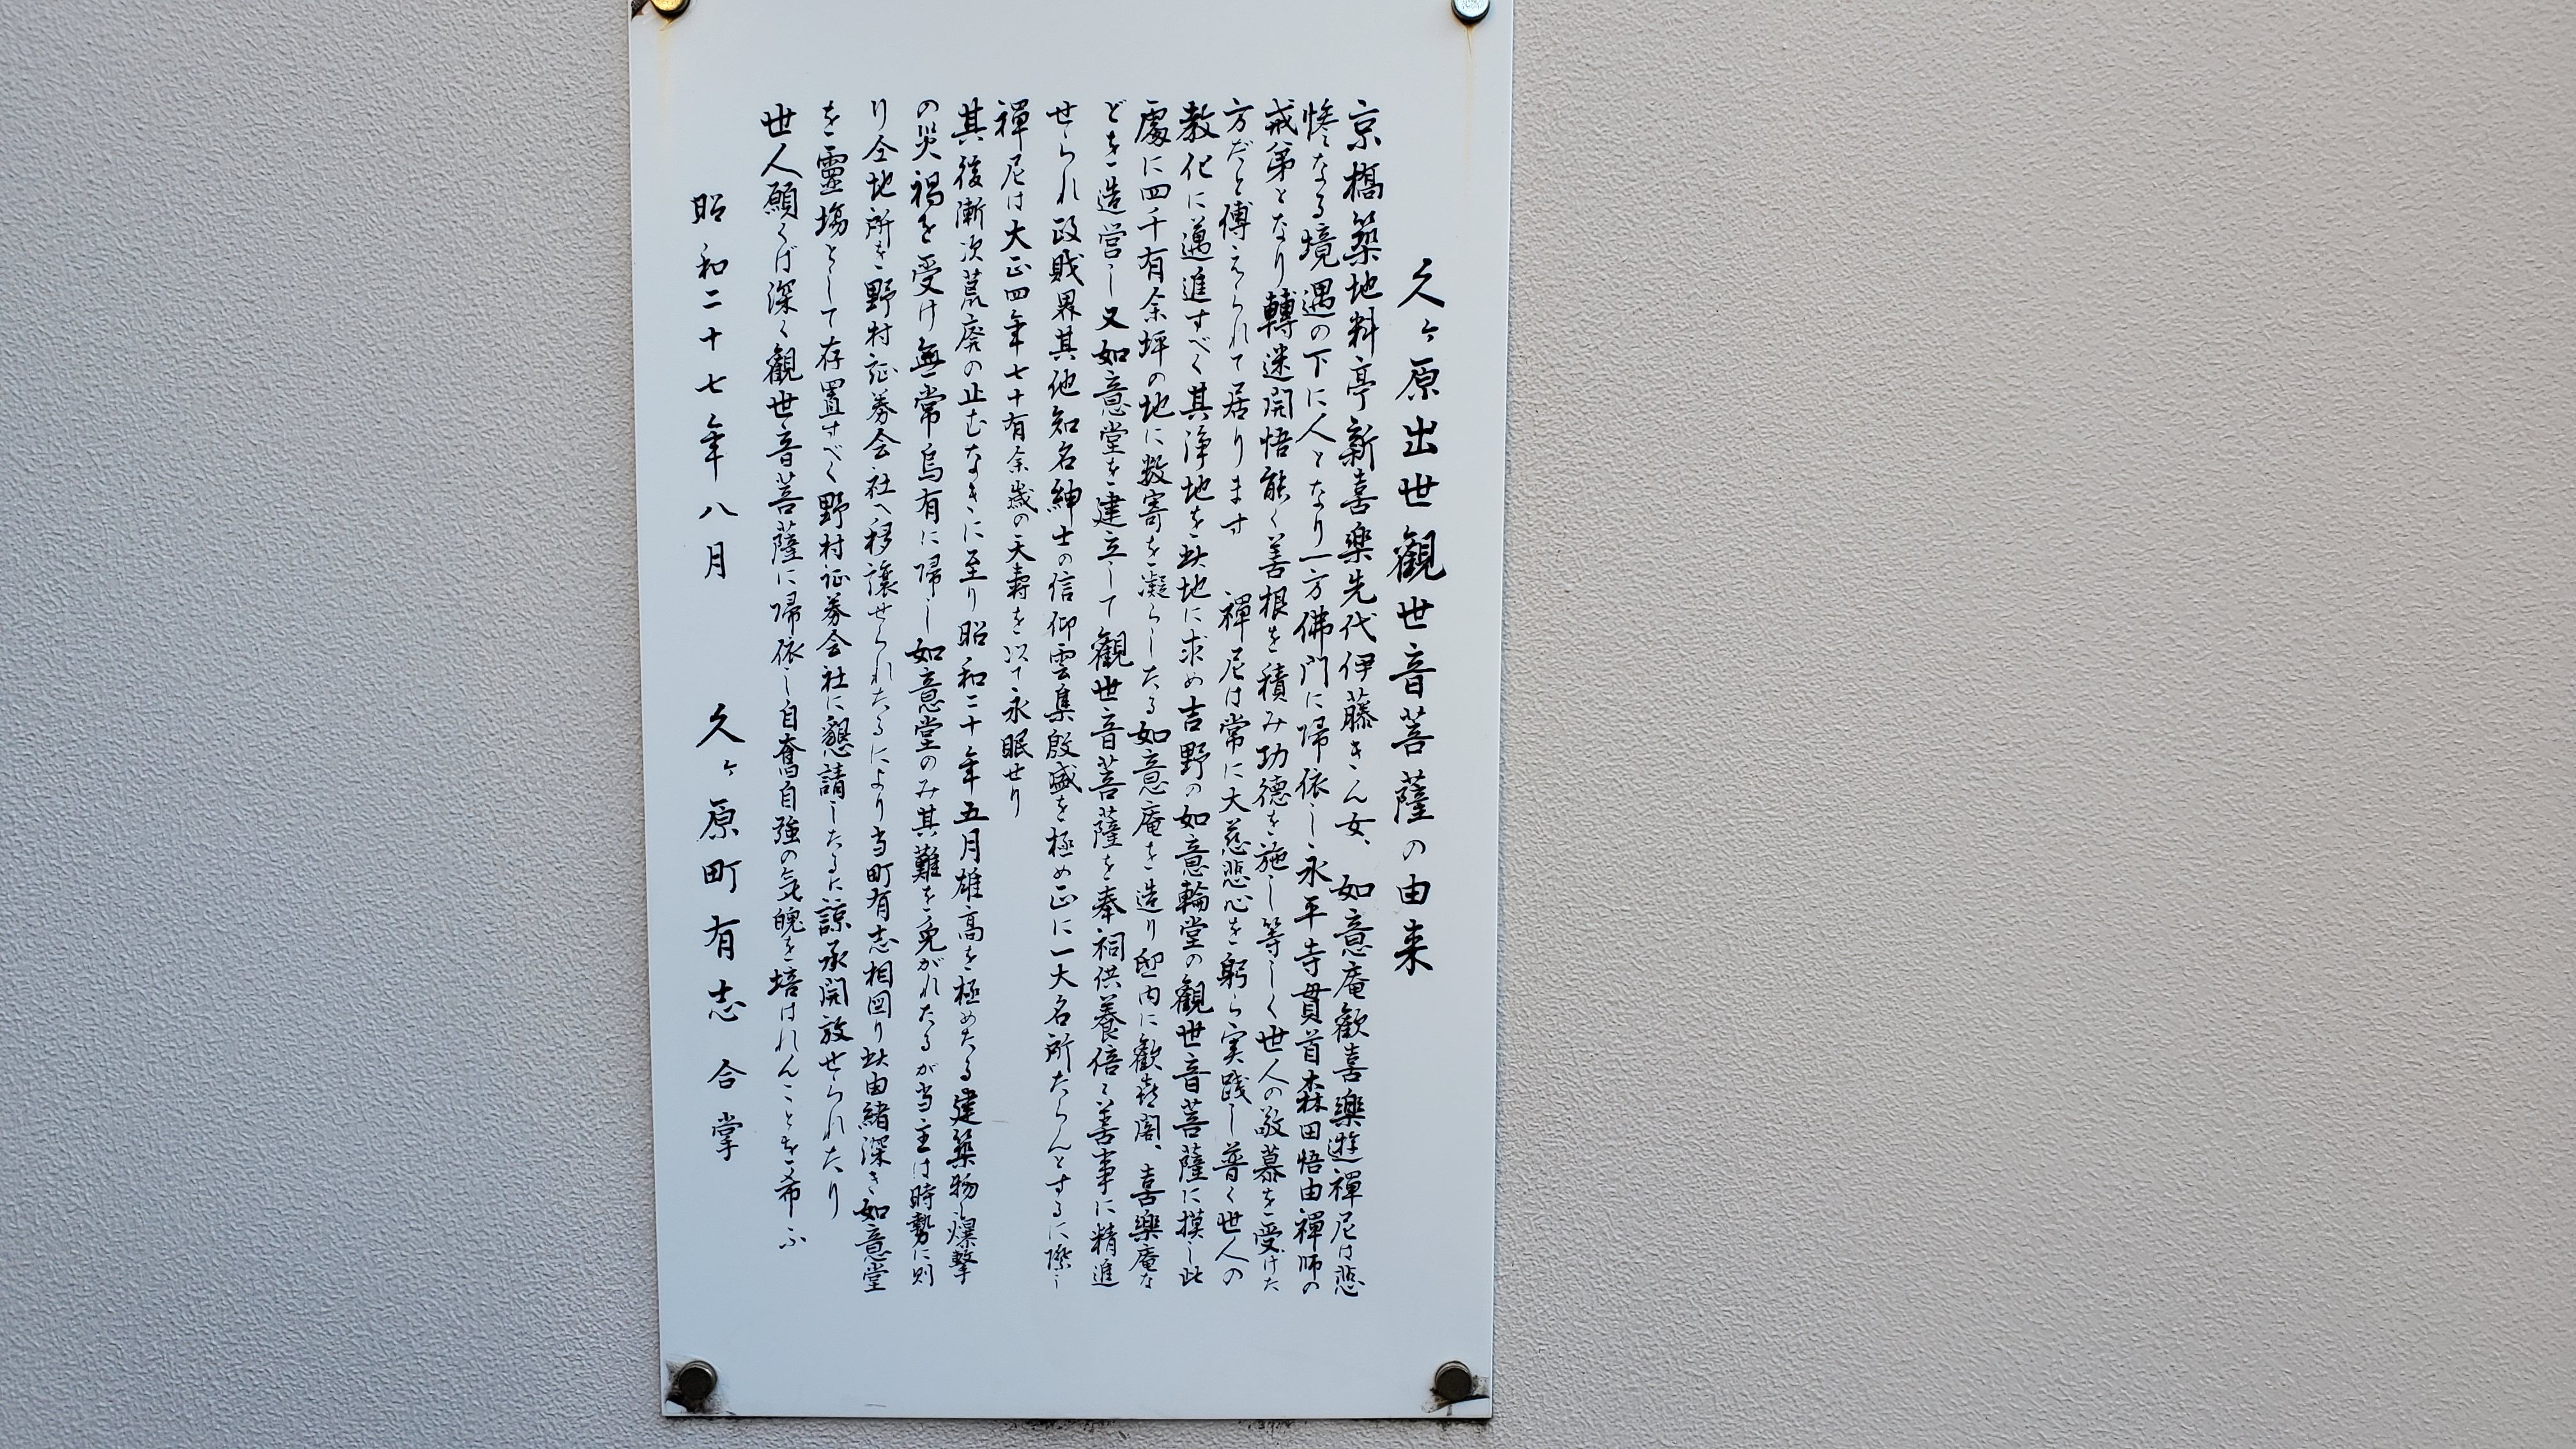 久ヶ原出世観世音菩薩の由来
京橋築地料亭新喜楽先代伊藤きん女、如意庵歓喜樂遊禅尼は悲
惨なる境遇の下に人となり一方佛門に帰依し永平寺貫首森田悟由禅師の
戒弟となり轉迷開悟能く善根を積み功徳を施し等しく世人の敬慕を受けた
方だと傳えられて居ります 禅尼は常に大慈悲心を躬ら実践し普く世人の
教化に邁進すべく其浄地を此地に求め吉野の如意輪堂の観世音菩薩に摸し此
處に四千有余坪の地に数寄を凝らしたる如意庵を造り邸内に歓喜閣、喜樂庵な
どを造営し又如意堂を建立して観世音菩薩を奉祠供養倍々善事に精進
せられ政財界其他知名紳士の信仰雲集殷盛を極め正に一大名所たらんとするに際し
禅尼は大正四年七十有余歳の天壽を以て永眠せり
其後漸次荒廃の止むなきに至り昭和二十年五月雄高を極めたる建築物も爆撃
の災禍を受け無常烏有に帰し如意堂のみ其難を免がれたるが当主は時勢に則
り今地所を野村証券会社へ移譲せられたるにより当町有志相図り此由緒深き如意堂
を靈場として存置すべく野村証券会社に懇請したるに諒承開放せられたり
世人願くば深く観世音菩薩に帰依し自奮自強の気魄を培はれんことを希ふ
昭和二十七年八月 久ヶ原町有志 合掌